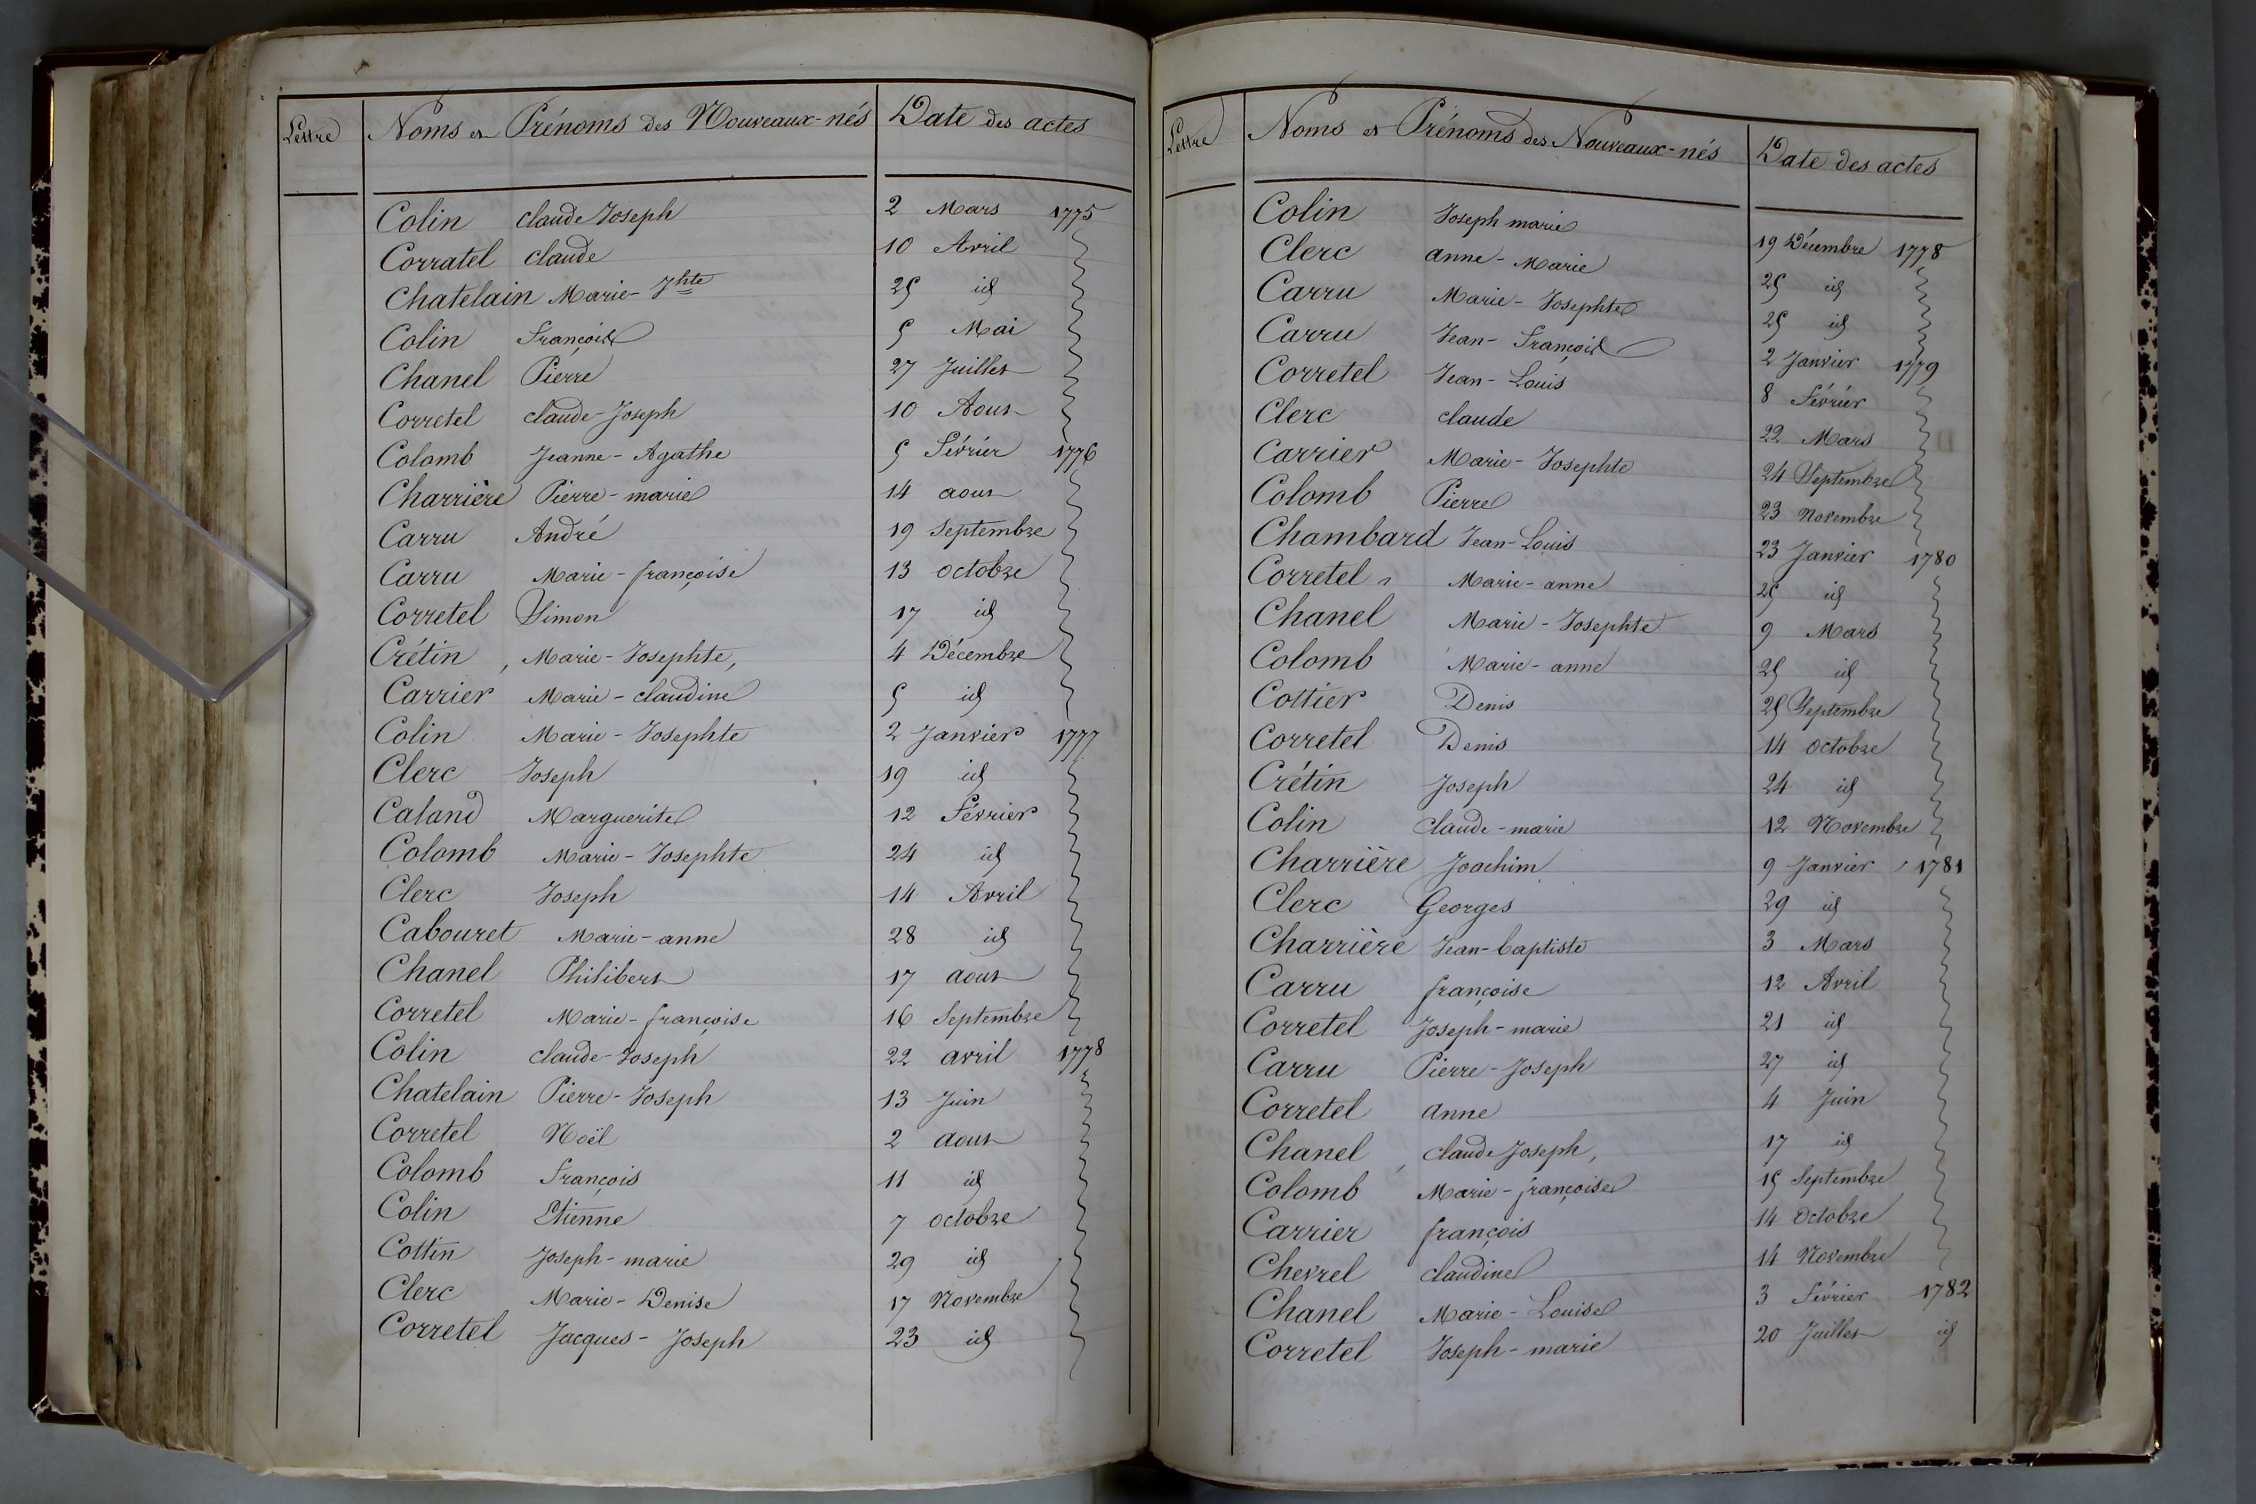 Lettre Noms et Prénoms des Nouveaux-nés Date des actes
Colin claude Joseph 2 Mars 1775
Corratel claude 10 Avril
Chatelain Marie-Jhte 25 id
Colin François 5 Mai
Chanel Pierre 27 Juillet
Corretel claude-Joseph 10 Aout
Colomb Jeanne-Agathe 5 Février 1776
Charrière Pierre-marie 14 aout
Carru André 19 Septembre
Carru Marie-françoise 13 octobre
Corretel Simon 17 id
Crétin, Marie-Josephte, 4 Décembre
Carrier Marie-claudine 5 id
Colin Marie-Josephte 2 Janvier 1777
Clerc Joseph 19 id
Caland Marguerite 12 Février
Colomb Marie-Josephte 24 id
Clerc Joseph 14 Avril
Cabouret Marie-anne 28 id
Chanel Philibert 17 aout
Corretel Marie-françoise 16 Septembre
Colin claude-Joseph 22 avril 1778
Chatelain Pierre-Joseph 13 Juin
Corretel Noël 2 aout
Colomb François 11 id
Colin Etienne 7 octobre
Cottin Joseph-marie 29 id
Clerc Marie-Denise 17 Novembre
Corretel Jacques-Joseph 23 id
Lettre Noms et Prénoms des Nouveaux-nés Date des actes
Colin Joseph marie 19 Décembre 1778
Clerc anne-Marie 25 id
Carru Marie-Josephte 25 id
Carru Jean-François 2 Janvier 1779
Corretel Jean-Louis 8 Février
Clerc claude 22 Mars
Carrier Marie-Josephte 24 Septembre
Colomb Pierre 23 Novembre
Chambard Jean-Louis 23 Janvier 1780
Corretel Marie-anne 25 id
Chanel Marie-Josephte 9 Mars
Colomb Marie-anne 25 id
Cottier Denis 25 Septembre
Corretel Denis 14 octobre
Crétin Joseph 24 id
Colin claude-marie 12 Novembre
Charrière Joachim 9 Janvier 1781
Clerc Georges 29 id
Charrière Jean-baptiste 3 Mars
Carru françoise 12 Avril
Corretel Joseph-marie 21 id
Carru Pierre-Joseph 27 id
Corretel anne 4 Juin
Chanel, claude Joseph, 17 id
Colomb Marie-françoise 15 Septembre
Carrier françois 14 Octobre
Chevrel claudine 14 Novembre
Chanel Marie-Louise 3 Février 1782
Corretel Joseph-marie 20 Juillet id